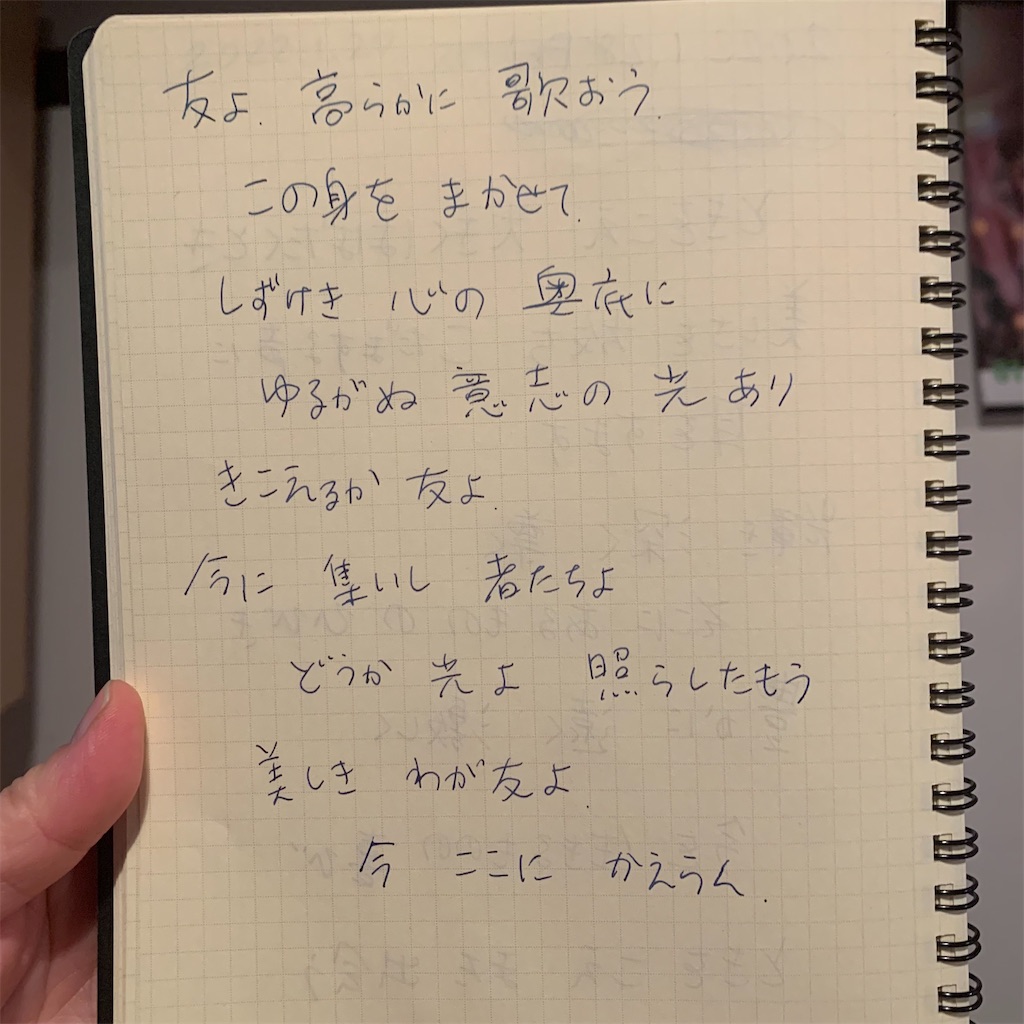 友よ. 高らかに 歌おう.
この身を まかせて.
しずけき 心の 奥底に
ゆるがぬ 意志の 光 あり
きこえるか 友よ.
今に 集いし 者たちよ
どうか 光よ 照らしたもう
美しき わが友よ.
今 ここに かえらん.